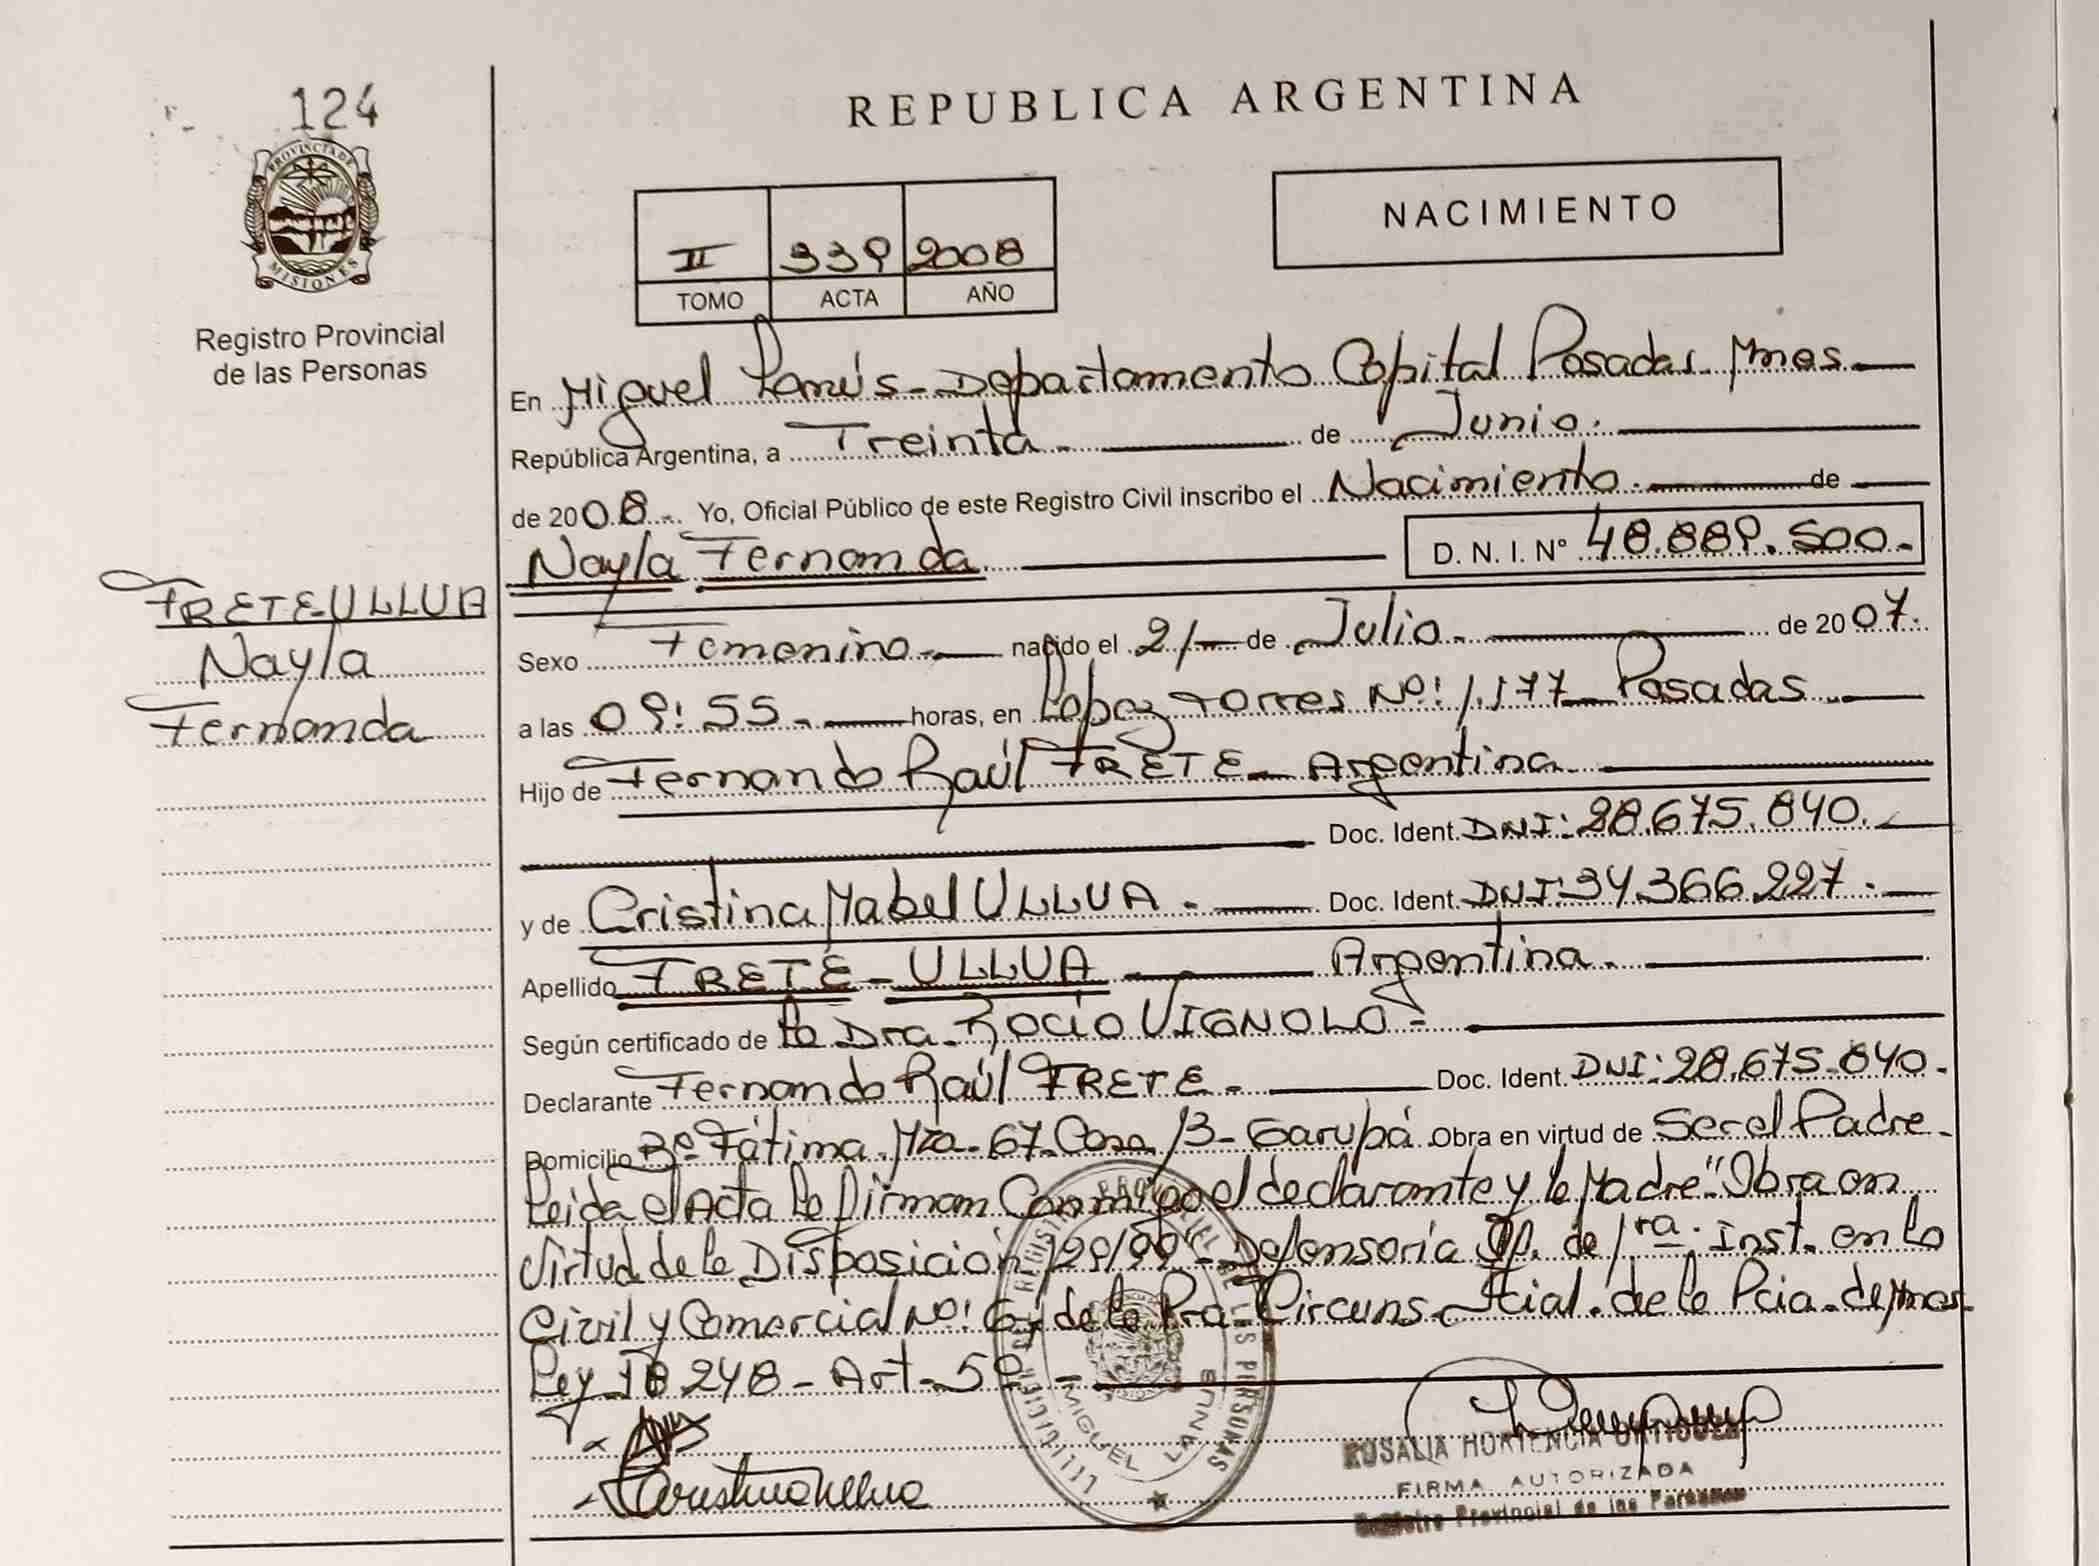 124
PROVINCIA DE
MISIONES
Registro Provincial
de las Personas
FRETE-ULLUA
Nayla
Fernanda
REPUBLICA ARGENTINA
II 339 2008
TOMO ACTA AÑO
NACIMIENTO
En Miguel Lanús - Departamento Capital Posadas Mnes.
República Argentina, a Treinta. de Junio.
de 2008. Yo, Oficial Público de este Registro Civil inscribo el Nacimiento. de
Nayla Fernanda D. N. I. Nº 48.889.500.
Sexo Femenino. nacido el 21 de Julio. de 2007.
a las 09:55. horas, en López Torres Nº: 1.177 Posadas.
Hijo de Fernando Raúl FRETE - Argentina
Doc. Ident. DNI: 28.675.840.
y de Cristina Mabel ULLUA. Doc. Ident. DNI: 34.366.227.
Apellido FRETE - ULLUA Argentina.
Según certificado de la Dra. Rocío VIGNOLO -
Declarante Fernando Raúl FRETE. Doc. Ident. DNI: 28.675.840.
Domicilio Bº Fátima Mza. 67 Casa 13 - Garupá Obra en virtud de Ser el Padre.
Leida el Acta la firman Conmigo el declarante y la Madre "Obra en
Virtud de la Disposición /99" Defensoría Of. de 1ra. Inst. en lo
Civil y Comercial Nº: 6, de la Pra. Circuns. Jcial. de la Pcia. de Mnes.
Ley 18248 - Art - 5º -
REGISTRO PROVINCIAL DE LAS PERSONAS
MIGUEL LANUS
ROSALIA HORTENCIA
FIRMA AUTORIZADA
Registro Provincial de las Personas